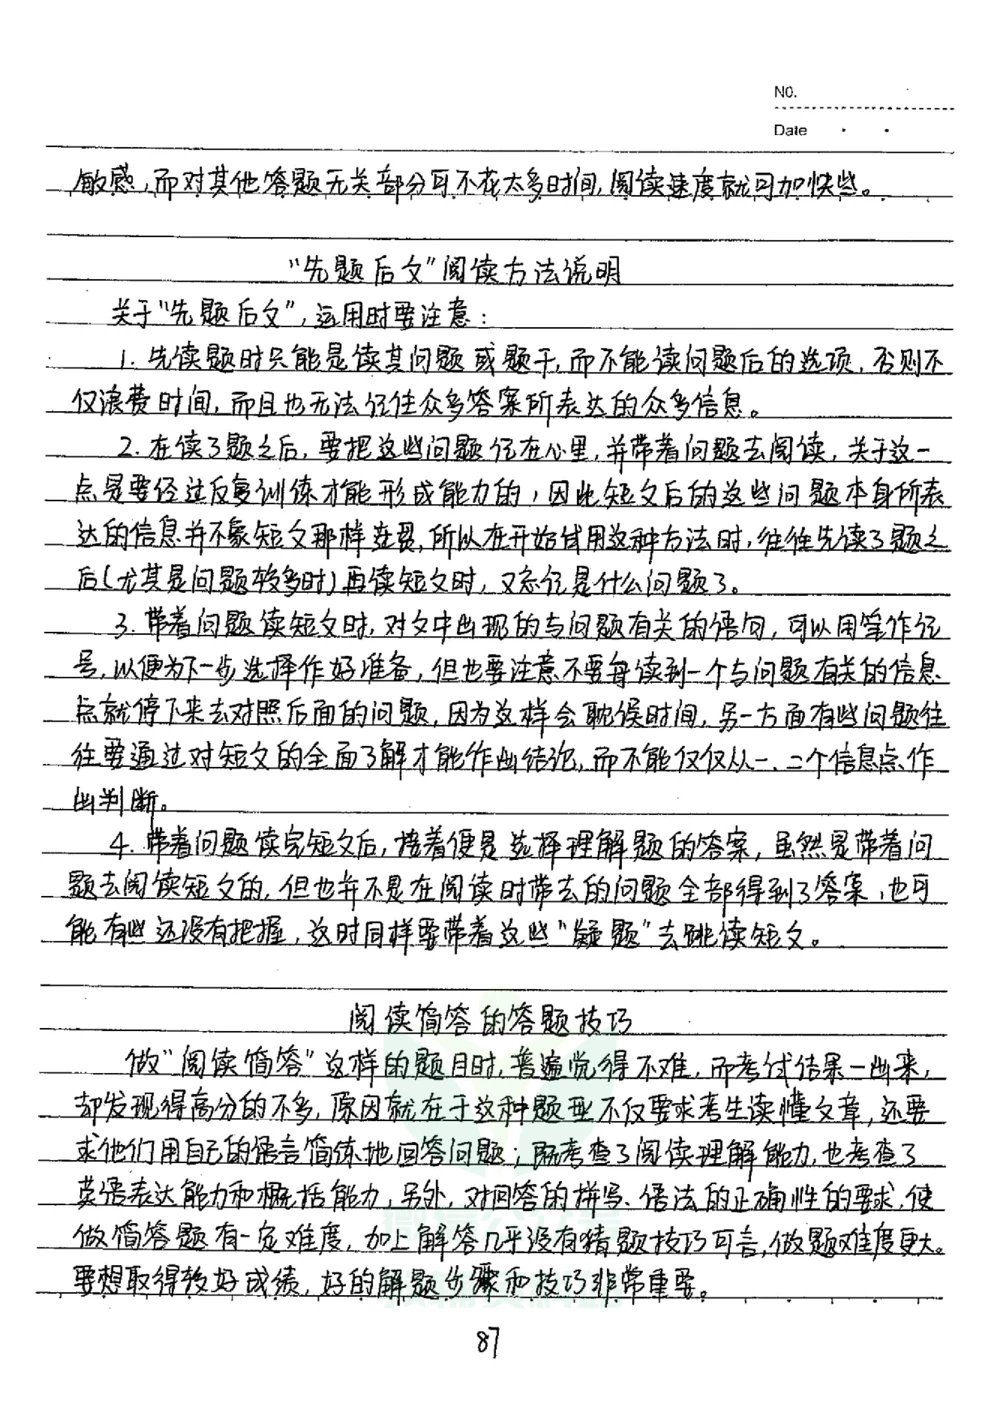 NO.
Date
敏感,而对其他答题无关部分可不花太多时间,阅读速度就可加快些。
“先题后文”阅读方法说明
关于“先题后文”,运用时要注意:
1. 先读题时只能是读其问题或题干,而不能读问题后的选项,否则不
仅浪费时间,而且也无法记住众多答案所表达的众多信息。
2. 在读了题之后,要把这些问题记在心里,并带着问题去阅读,关于这一
点是要经过反复训练才能形成能力的,因此短文后的这些问题本身所表
达的信息并不象短文那样连贯,所以在开始试用这种方法时,往往先读了题之
后(尤其是问题较多时)再读短文时,又忘记是什么问题了。
3. 带着问题读短文时,对文中出现的与问题有关的语句,可以用笔作记
号,以便为下一步选择作好准备,但也要注意不要每读到一个与问题有关的信息
点就停下来去对照后面的问题,因为这样会耽误时间,另一方面有些问题往
往要通过对短文的全面了解才能作出结论,而不能仅仅从一、二个信息点作
出判断。
4. 带着问题读完短文后,接着便是选择理解题的答案,虽然是带着问
题去阅读短文的,但也并不是在阅读时带去的问题全部得到了答案,也可
能有些还没有把握,这时同样要带着这些“疑题”去跳读短文。
阅读简答的答题技巧
做“阅读简答”这样的题目时,普遍觉得不难,而考试结果一出来,
却发现得高分的不多,原因就在于这种题型不仅要求考生读懂文章,还要
求他们用自己的语言简练地回答问题;既考查了阅读理解能力,也考查了
英语表达能力和概括能力,另外,对回答的拼写、语法的正确性的要求,使
做简答题有一定难度,加上解答几乎没有猜题技巧可言,做题难度更大。
要想取得较好成绩,好的解题步骤和技巧非常重要。
87